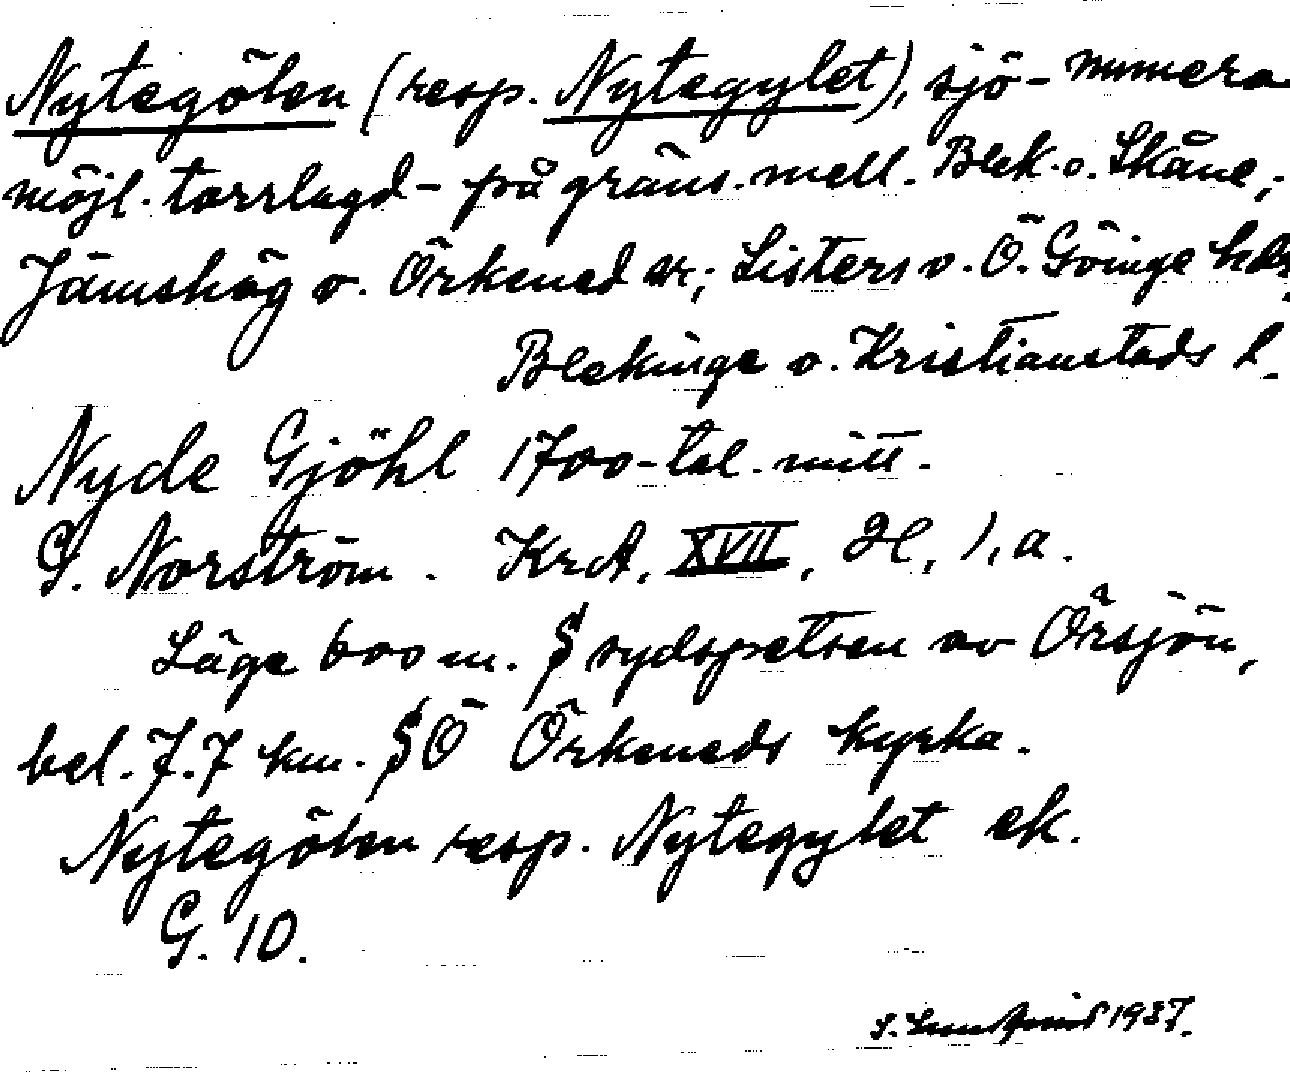 Nytegölen (resp. Nytegylet), sjö - numera
möjl. torrlagd - på gräns. mell. Blek. o. Skåne;
Jämshög o. Örkened sr; Listers o. Ö. Göinge hds,
Blekinge o. Kristianstads l.
Nyde Gjöhl 1700-tal. mitt.
G. Norström. KrA, XVII, Bl, 1, a.
Läge 600 m. S sydspetsen av Örsjön,
bel. 7.7 km. SÖ Örkeneds kyrka.
Nytegölen resp. Nytegylet ek.
G. 10.
S. Lundquist 1937.